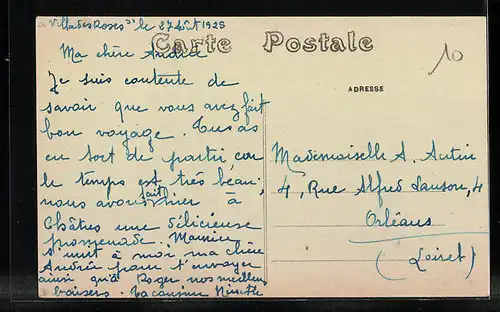 "Villa des Roses" le 27 Août 1928
Carte Postale
Ma chère Andrée
10
Je suis contente de
savoir que vous avez fait
bon voyage. Tu as
eu tort de partir, car
le temps est très beau;
nous avons fait hier à
Châtres une délicieuse
promenade. Mamie
s'unit à moi ma chère
Andrée pour t'envoyer
ainsi qu'à Roger nos meilleurs
baisers. Ta cousine
ADRESSE
Mademoiselle A. Autin
4, Rue Alfred Lanson, 4
Orléans
(Loiret)